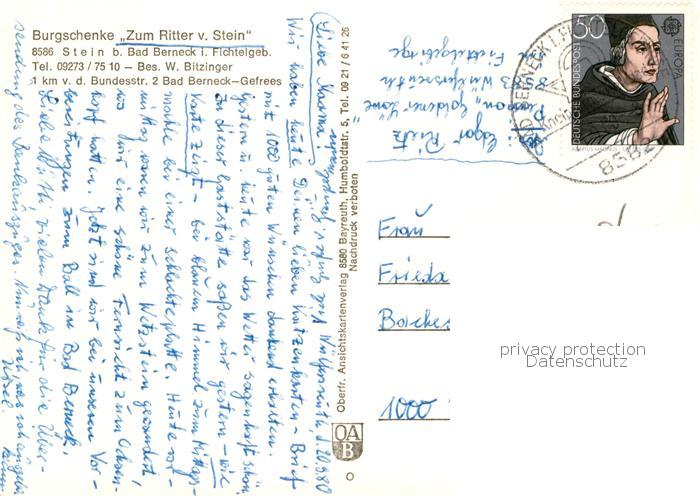 Burgschenke „Zum Ritter v. Stein“
8586 Stein b. Bad Berneck i. Fichtelgeb.
Tel. 09273 / 75 10 — Bes. W. Bitzinger
1 km v. d. Bundesstr. 2 Bad Berneck—Gefrees
Liebe Karma
Wir haben heute Deinen lieben Katzenkarten-Brief
mit 1000 guten Wünschen dankend erhalten.
gestern u. heute war das Wetter sagenhaft schön.
In dieser Gaststätte saßen wir gestern – wie
Karte zeigt – bei blauem Himmel zum Mittags-
mahle bei einer Schlachtplatte. Heute vor-
mittag waren wir zum Wetzstein gewandert,
wo wir eine schöne Fernsicht zum Ochsen-
kopf hatten. Jetzt sind wir bei unseren Vor-
bereitungen zum Ball in Bad Berneck.
Liebe Edith vielen Dank für die Über-
sendung des Bankauszuges.
Oberfr. Ansichtskartenverlag 8580 Bayreuth, Humboldtstr. 5, Tel. 09 21 / 6 41 26
Nachdruck verboten
OA
B
Edgar Rietz
Pension Goldener Löwe
Fichtelgebirge
50
DEUTSCHE BUNDESPOST
EUROPA
CEPT
ALBERTUS MAGNUS
8582
Frau
Frieda
1000
privacy protection
Datenschutz